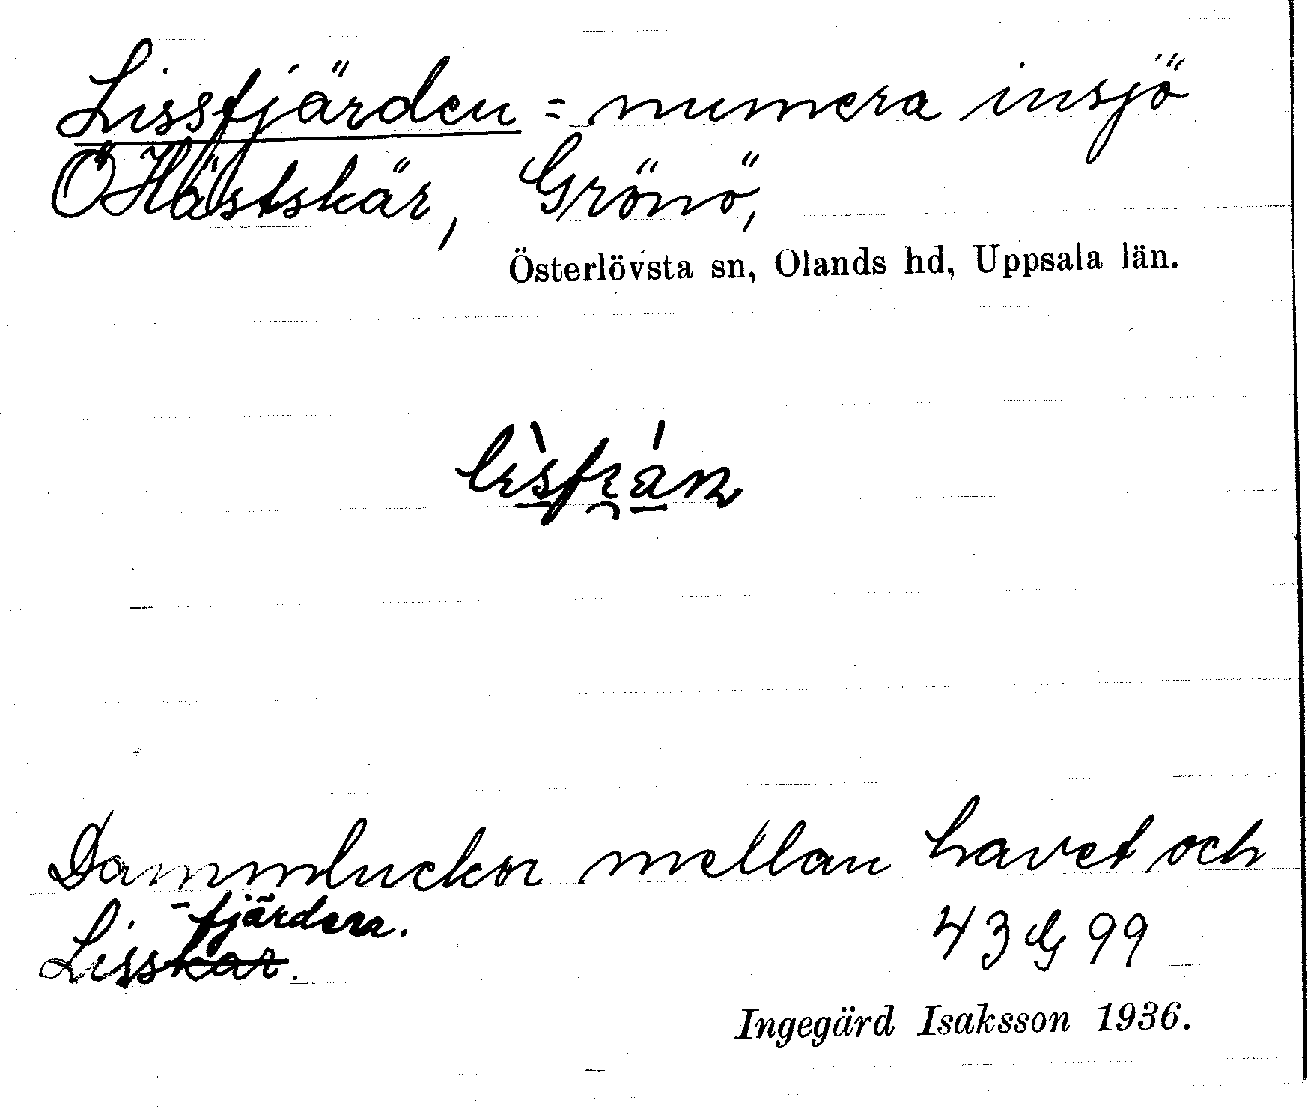 Lissfjärden = numera insjö
Ö Hästskär, Grönö,
Österlövsta sn, Olands hd, Uppsala län.
Dammluckor mellan havet och
-fjärden.
Lisskär.
43 G 99
Ingegärd Isaksson 1936.